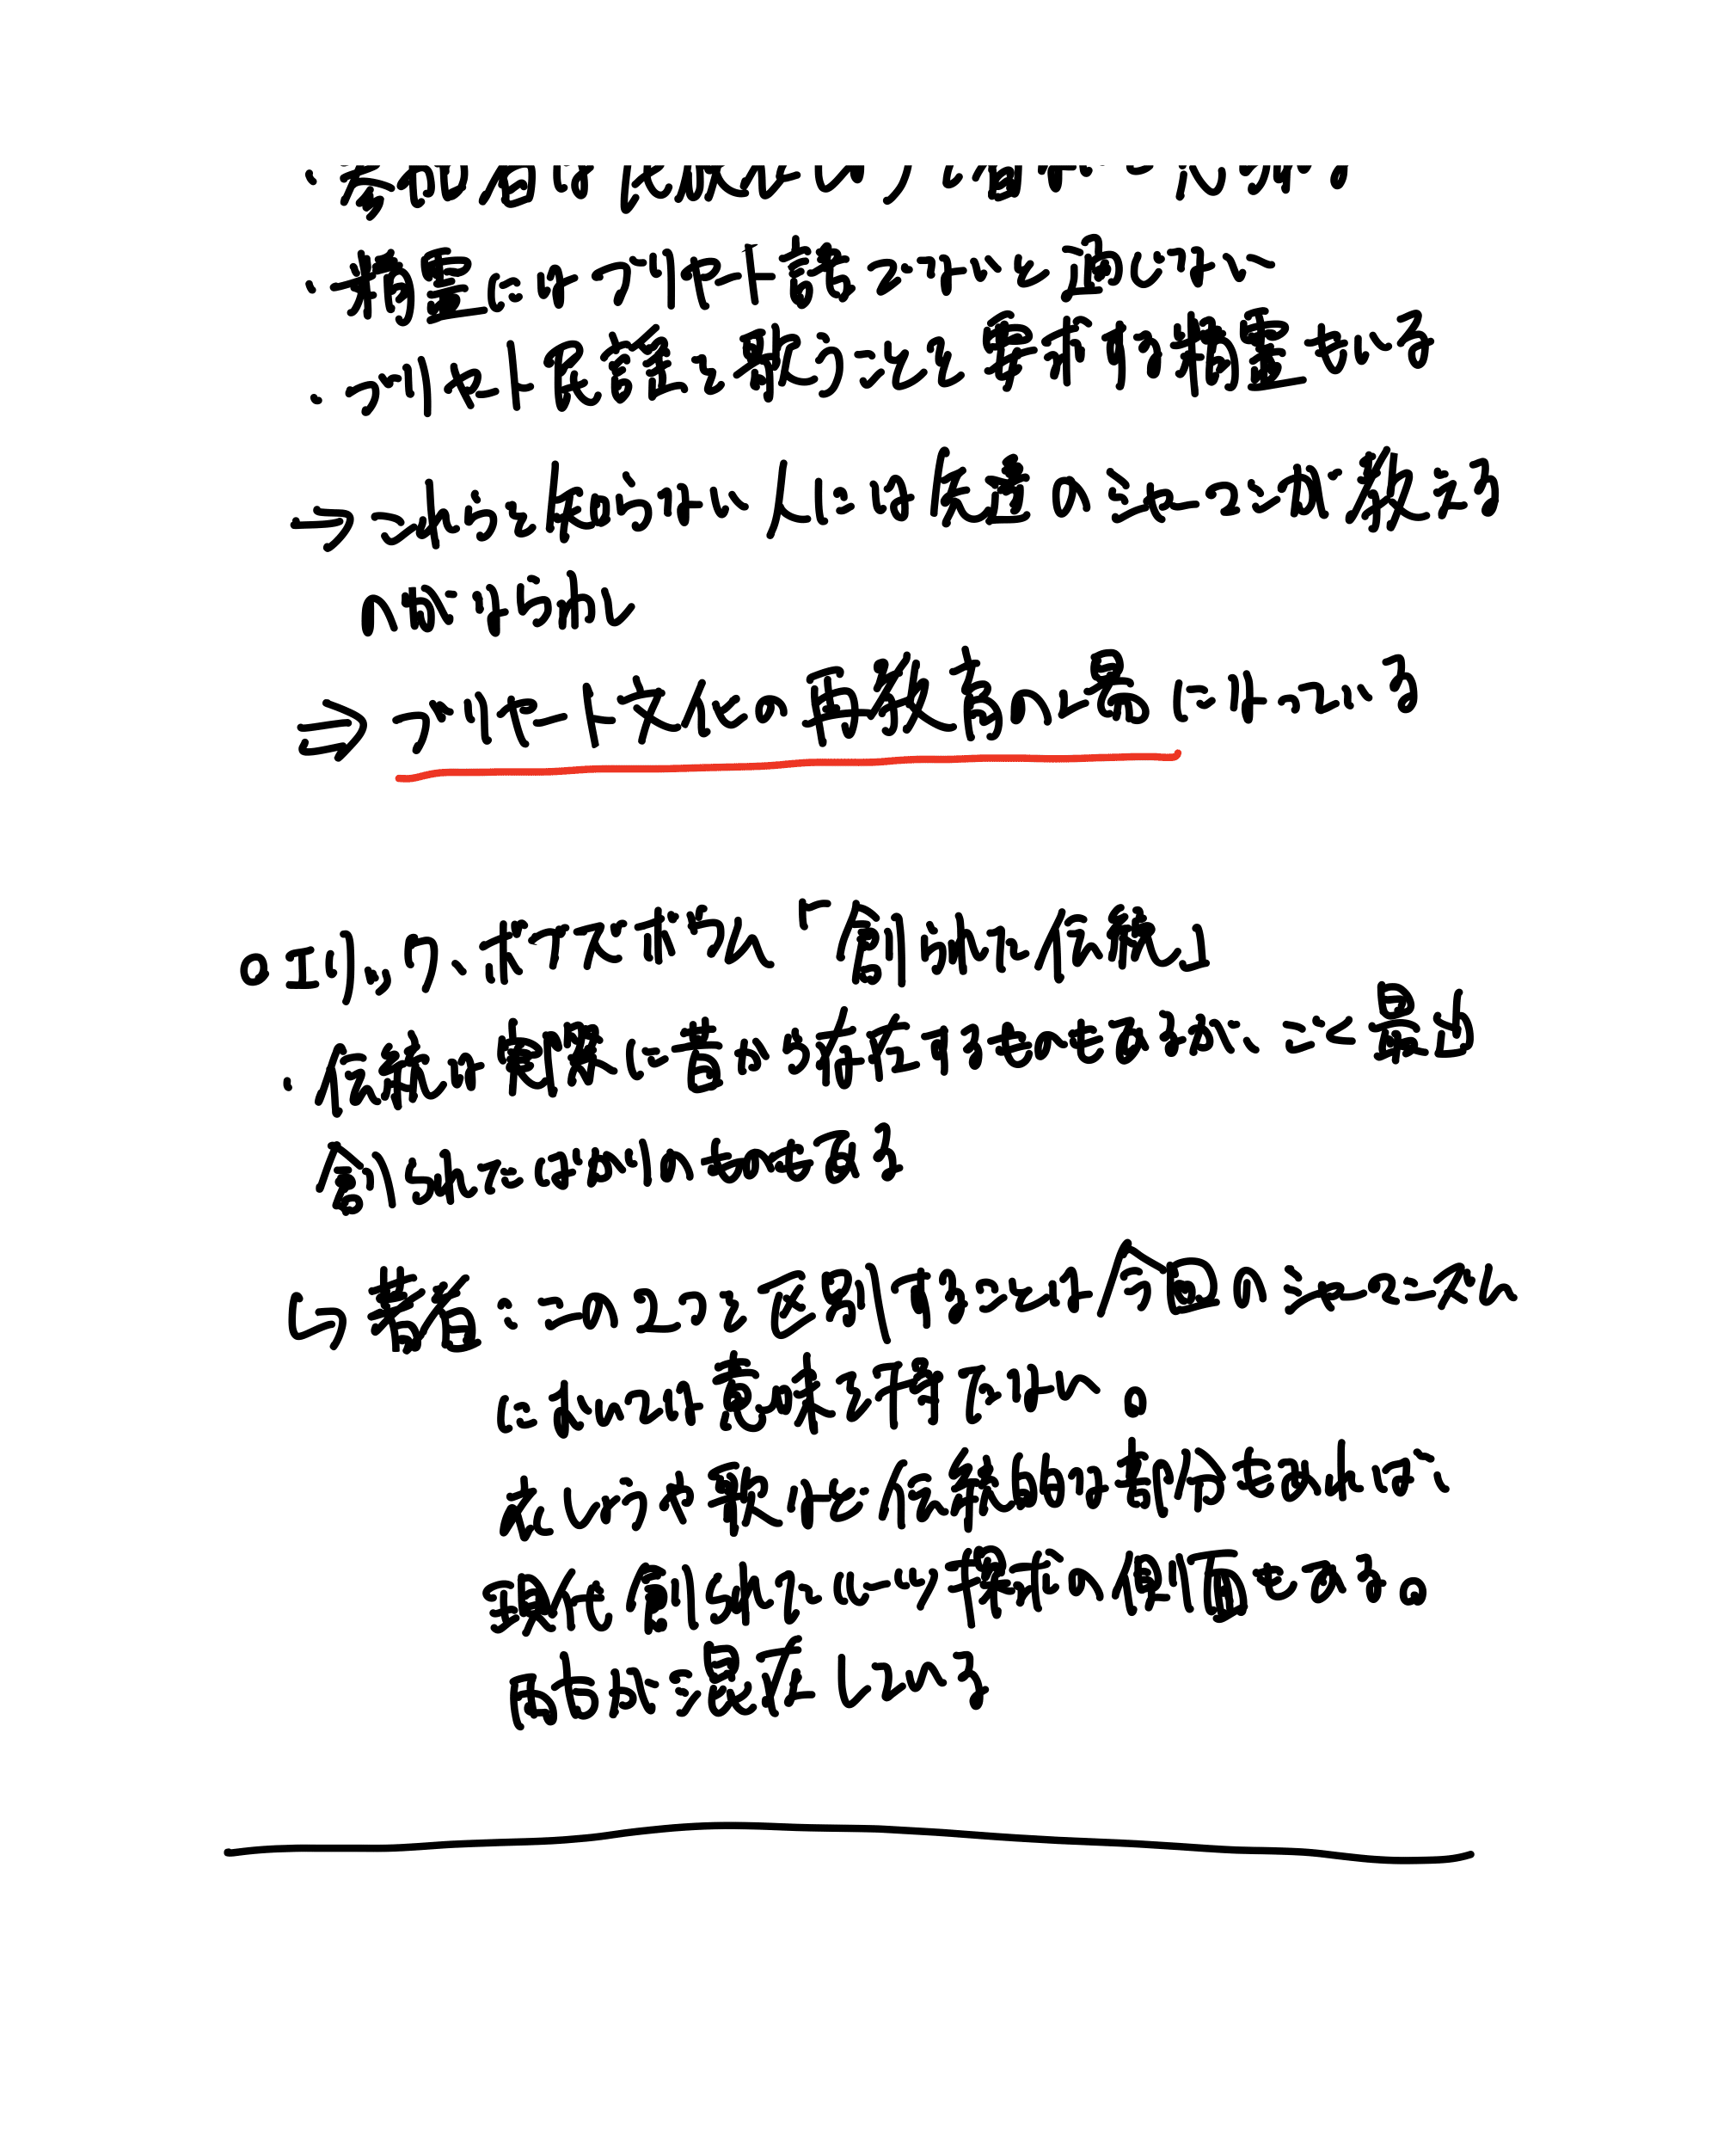 ・精霊にはブリヤート語でないと通じない
・ブリヤート民謡を歌うことを要求する精霊もいる
→これらを知らない人には先達のシャーマンが教える
のがならわし
⇒ブリヤート文化の再教育の場になっている
○エリック・ホブズボウム「創られた伝統」
・伝統は実際に昔から存在するものもあるが、ごく最近
創られたばかりのものもある
↳著者:この2つを区別することは今回のシャーマニズム
においては意味を持たない。
衣しょうや歌など伝統的な部分もあれば、
現代創られたいい
の側面もある。
両方が混在している